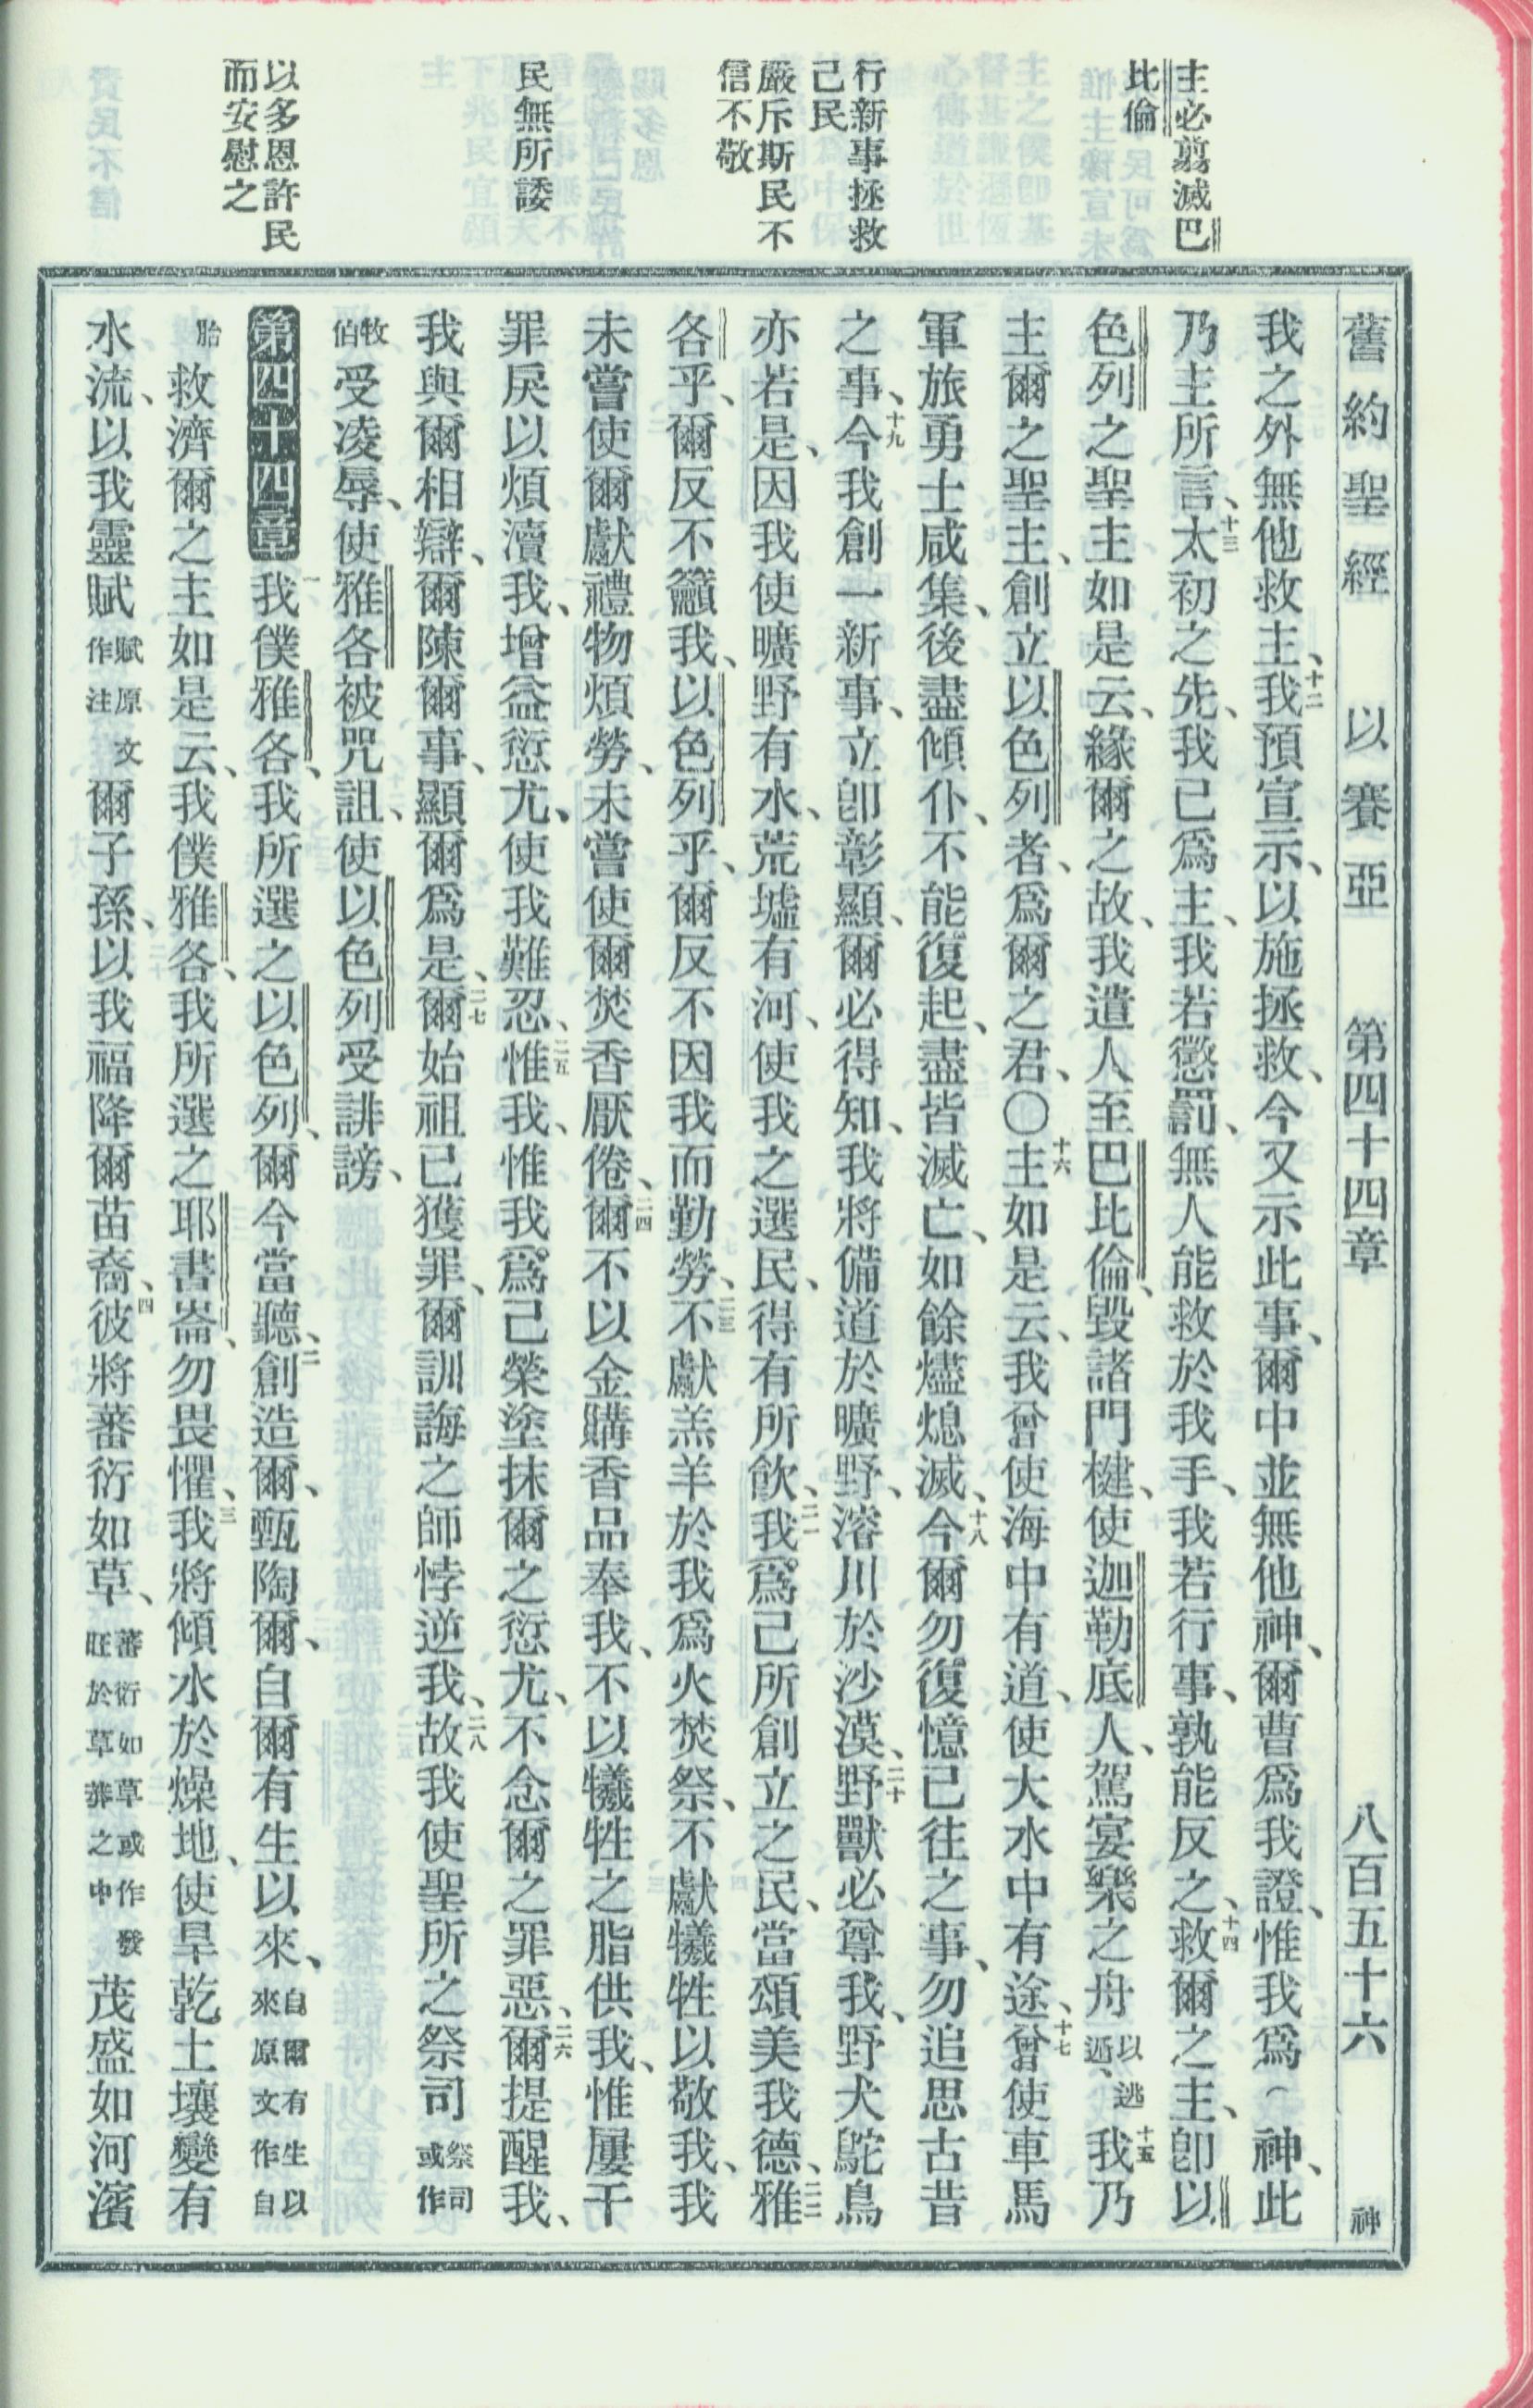 主必翦滅巴
比倫
行新事拯救
己民
嚴斥斯民不
信不敬
民無所諉
以多恩許民
而安慰之
舊約聖經 以賽亞 第四十四章 八百五十六 神
我之外無他救主、十二我預宣示、以施拯救、今又示此事、爾中並無他神、爾曹爲我證、惟我爲神、此
乃主所言、十三太初之先、我已爲主、我若懲罰、無人能救於我手、我若行事、孰能反之、十四救爾之主、卽以
色列之聖主如是云、緣爾之故、我遣人至巴比倫、毀諸門楗、使迦勒底人、駕宴樂之舟以逃遁、十五我乃
主爾之聖主、創立以色列者、爲爾之君、〇十六主如是云、我曾使海中有道、使大水中有途、十七曾使車馬
軍旅勇士咸集、後盡傾仆、不能復起、盡皆滅亡、如餘燼熄滅、十八今爾勿復憶已往之事、勿追思古昔
之事、十九今我創一新事、立卽彰顯、爾必得知、我將備道於曠野、濬川於沙漠、二十野獸必尊我、野犬鴕鳥
亦若是、因我使曠野有水、荒墟有河、使我之選民、得有所飲、二一我爲己所創立之民、當頌美我德、二二雅
各乎、爾反不籲我、以色列乎、爾反不因我而勤勞、二三不獻羔羊於我爲火焚祭、不獻犧牲以敬我、我
未嘗使爾獻禮物煩勞、未嘗使爾焚香厭倦、二四爾不以金購香品奉我、不以犧牲之脂供我、惟屢干
罪戾以煩瀆我、增益愆尤、使我難忍、二五惟我、惟我爲己榮塗抹爾之愆尤、不念爾之罪惡、二六爾提醒我、
我與爾相辯、爾陳爾事、顯爾爲是、二七爾始祖已獲罪、爾訓誨之師悖逆我、二八故我使聖所之祭司祭司或作
牧伯受凌辱、使雅各被咒詛、使以色列受誹謗、
第四十四章 一我僕雅各、我所選之以色列、爾今當聽、二創造爾、甄陶爾、自爾有生以來、自爾有生以來原文作自
胎救濟爾之主如是云、我僕雅各、我所選之耶書崙、勿畏懼、三我將傾水於燥地、使旱乾土壤變有
水流、以我靈賦賦原文作注爾子孫、以我福降爾苗裔、四彼將蕃衍如草、蕃衍如草或作發旺於草莽之中茂盛如河濱